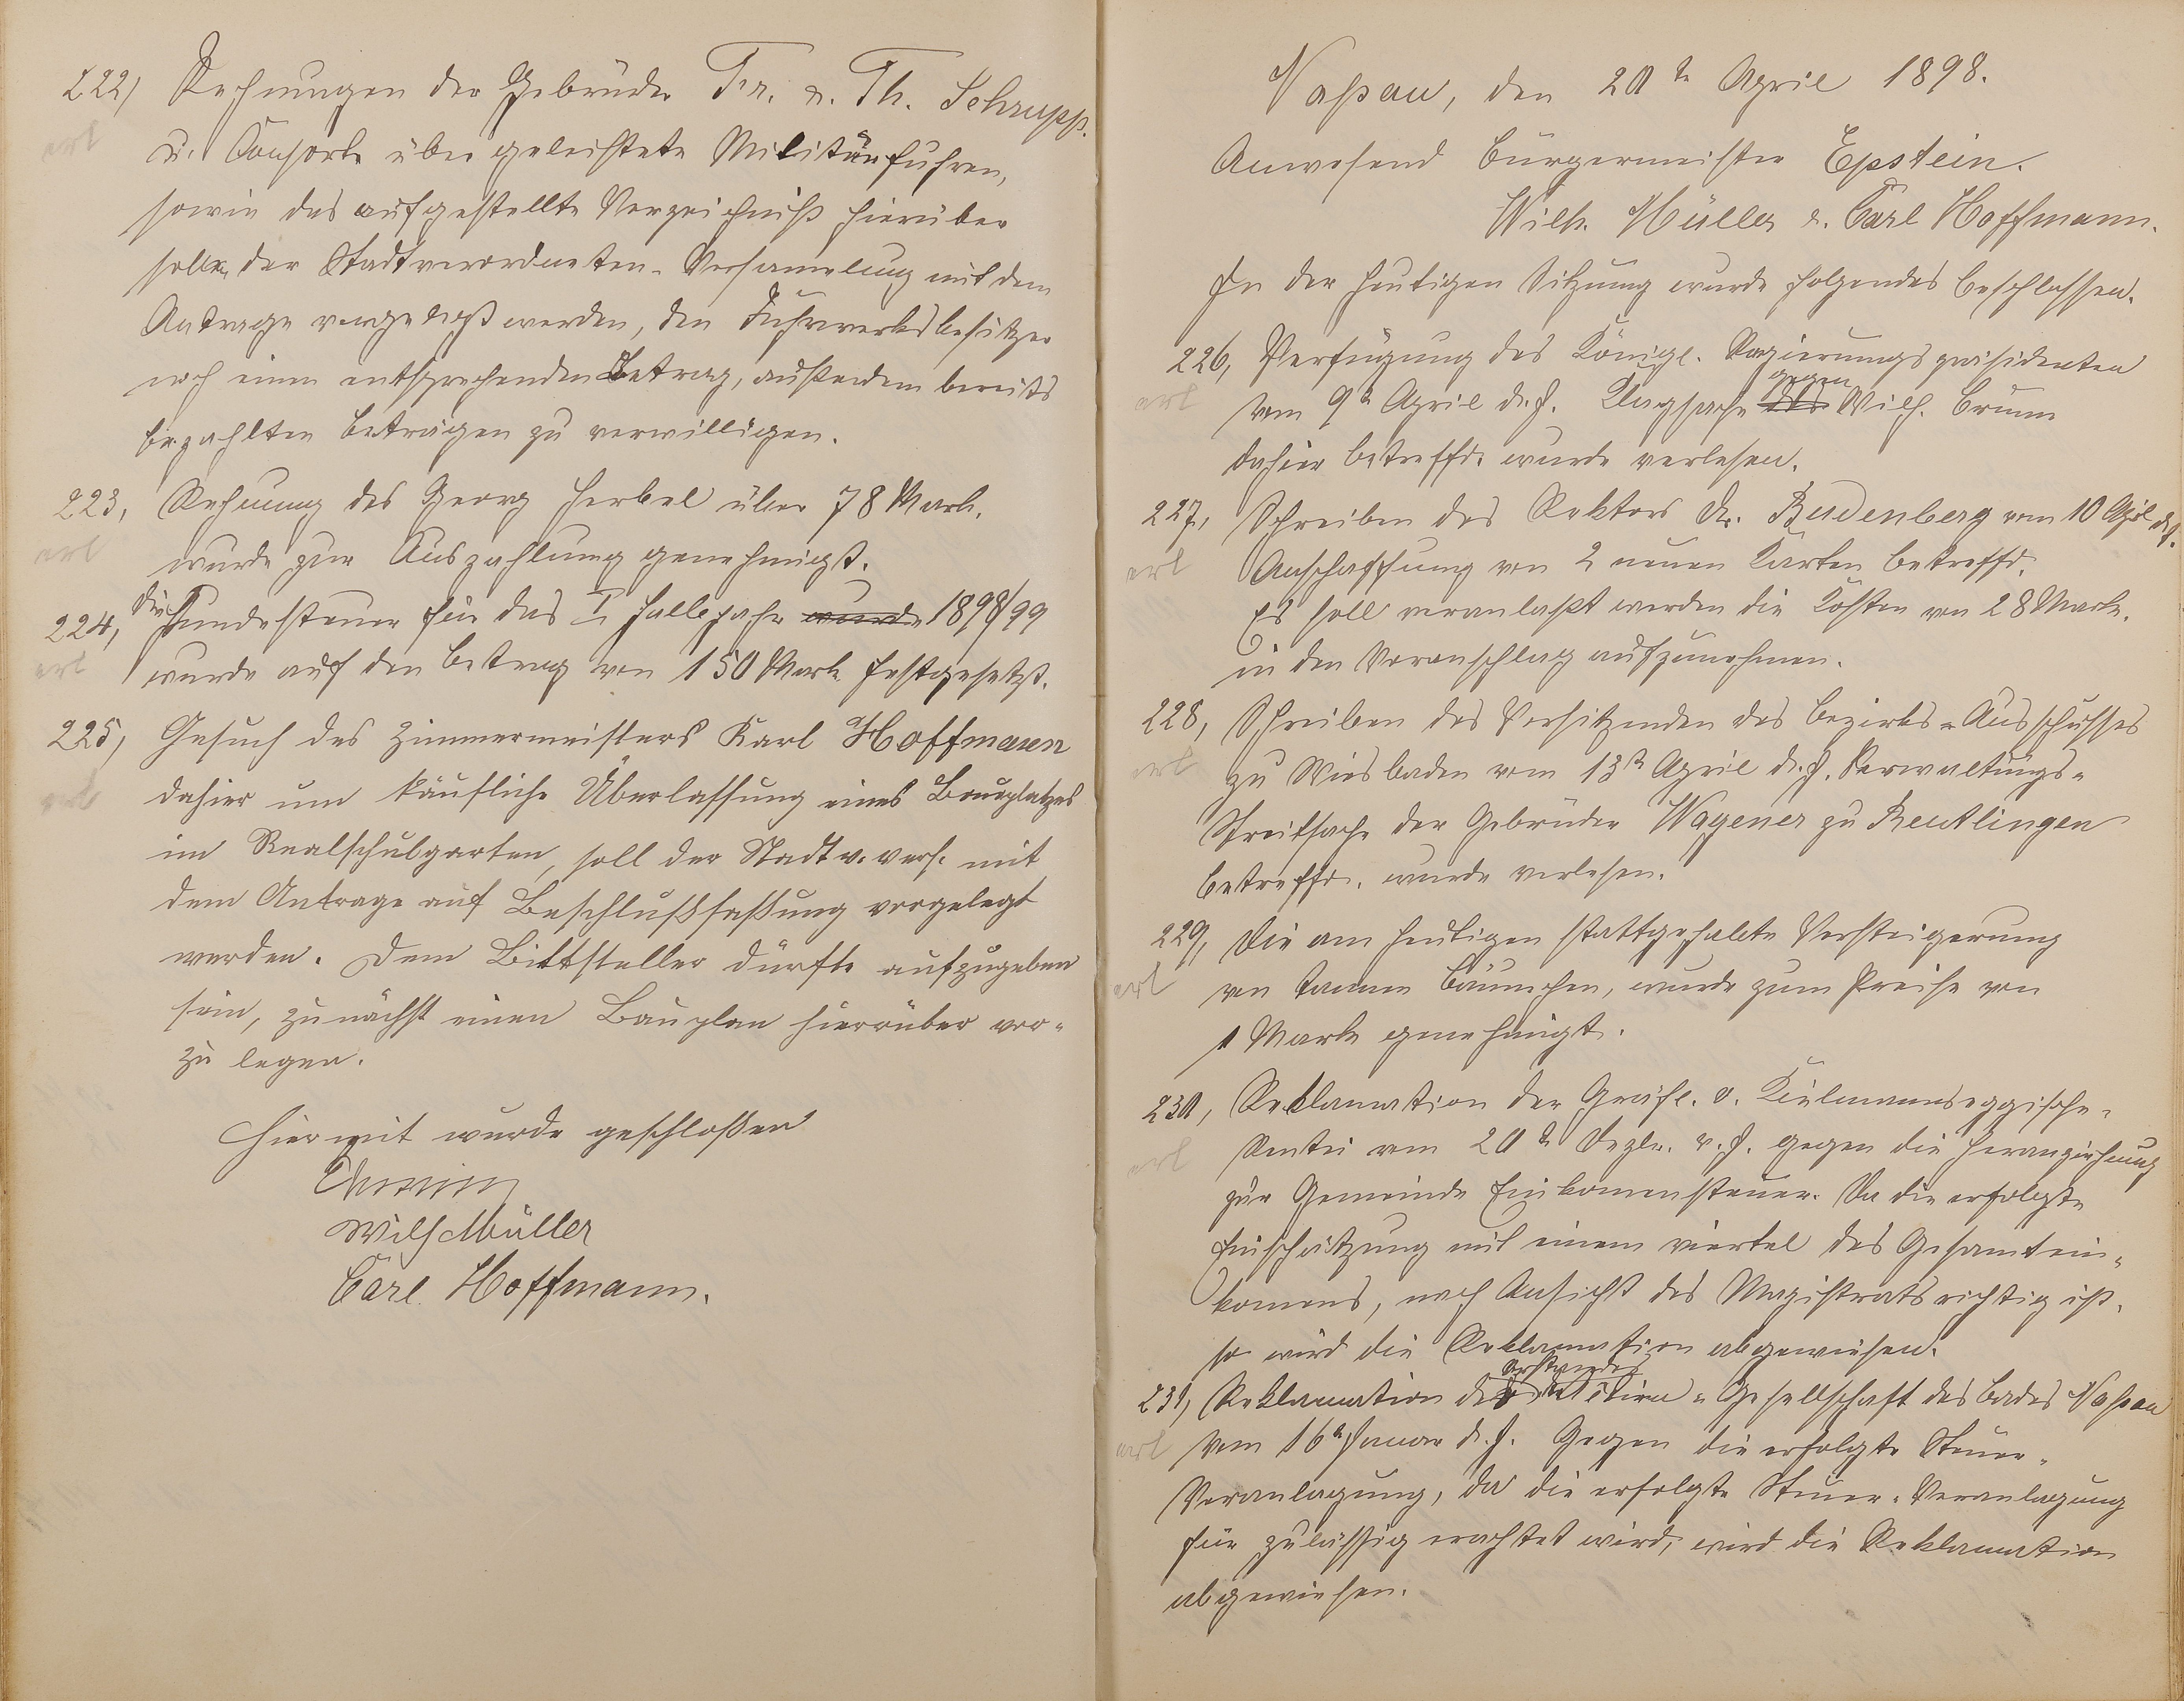 222) Rechnungen der Gebrüder Fr. u. Th. Schrupp.
erl
u. Consorte über geleistete Militärfuhren,
sowie das aufgestellte Verzeichniß hierüber
sollen der Stadtverordneten-Versamelung mit dem
Antrage vorgelegt werden, den Fuhrwerksbesitzer
noch einen entsprechenden Betrag, außer den bereits
bezahlten Beträgen zu verwilligen.
223, Rechnung des Georg Herbel über 78 Mark.
erl
wurde zur Auszahlung genehmigt.
224, die Hundesteuer für das I. Halbjahr wurde 1898/99
erl
wurde auf den Betrag von 150 Mark festgesetzt.
225, Gesuch des Zimmermeisters Karl Hoffmann
erl
dahier um käufliche Überlassung eines Bauplatzes
im Realschulgarten, soll der Stadtv. vers. mit
dem Antrage auf Beschlußfaßung vorgelegt
werden. Dem Bittsteller dürfte aufzugeben
sein, zunächst einen Bauplan hierrüber vor-
zu legen.
Hiermit wurde geschloßen
Wilh Müller
Carl Hoffmann.
Naßau, den 20te April 1898.
Anwesend Bürgermeister Epstein.
Wilh. Müller u. Carl Hoffmann.
In der heutigen Sitzung wurde folgendes beschlossen.
226, Verfügung des Königl. Regierungspräsidenten
erl
vom 9te April d. J. Klagsache des gegen Wilh. Brum
dahier betreffd. wurde verlesen.
227, Schreiben des Rektors Dr. Budenberg vom 10 April d. J.
erl
Anschaffung von 2 neuen Karten betreffd.
Es soll veranlaßt werden die Kosten von 28 Mark.
in den Voranschlag aufzunehmen.
228, Schreiben des Vorsitzenden des Bezirks-Ausschusses
erl
zu Wiesbaden vom 13te April d. J. Verwaltungs-
Streitsache der Gebrüder Wagener zu Reutlingen
betreffd. wurde verlesen.
229, Die am heutigen stattgehabte Versteigerung
erl
von tannen Bäumchen, wurde zum Preise von
1 Mark genehmigt.
230, Reklamation der Gräfl. v. Kielmannseggische-
erl
Rentei vom 20te Dezbr. v. J. gegen die Heranziehung
zur Gemeinde Einkomensteuer. Da die erfolgte
Einschätzung mit einem viertel des Gesamtein-
komens, nach Ansicht des Magistrats richtig ist,
so wird die Reklamation abgewiesen.
231, Reklamation des Vorstandes der Aktien-Gesellschaft des Bades Naßau
erl
vom 16te Januar d. J. Gegen die erfolgte Steuer-
Veranlagung, da die erfolgte Steuer-Veranlagung
für zulässig erachtet wird, wird die Reklamation
abgewiesen.